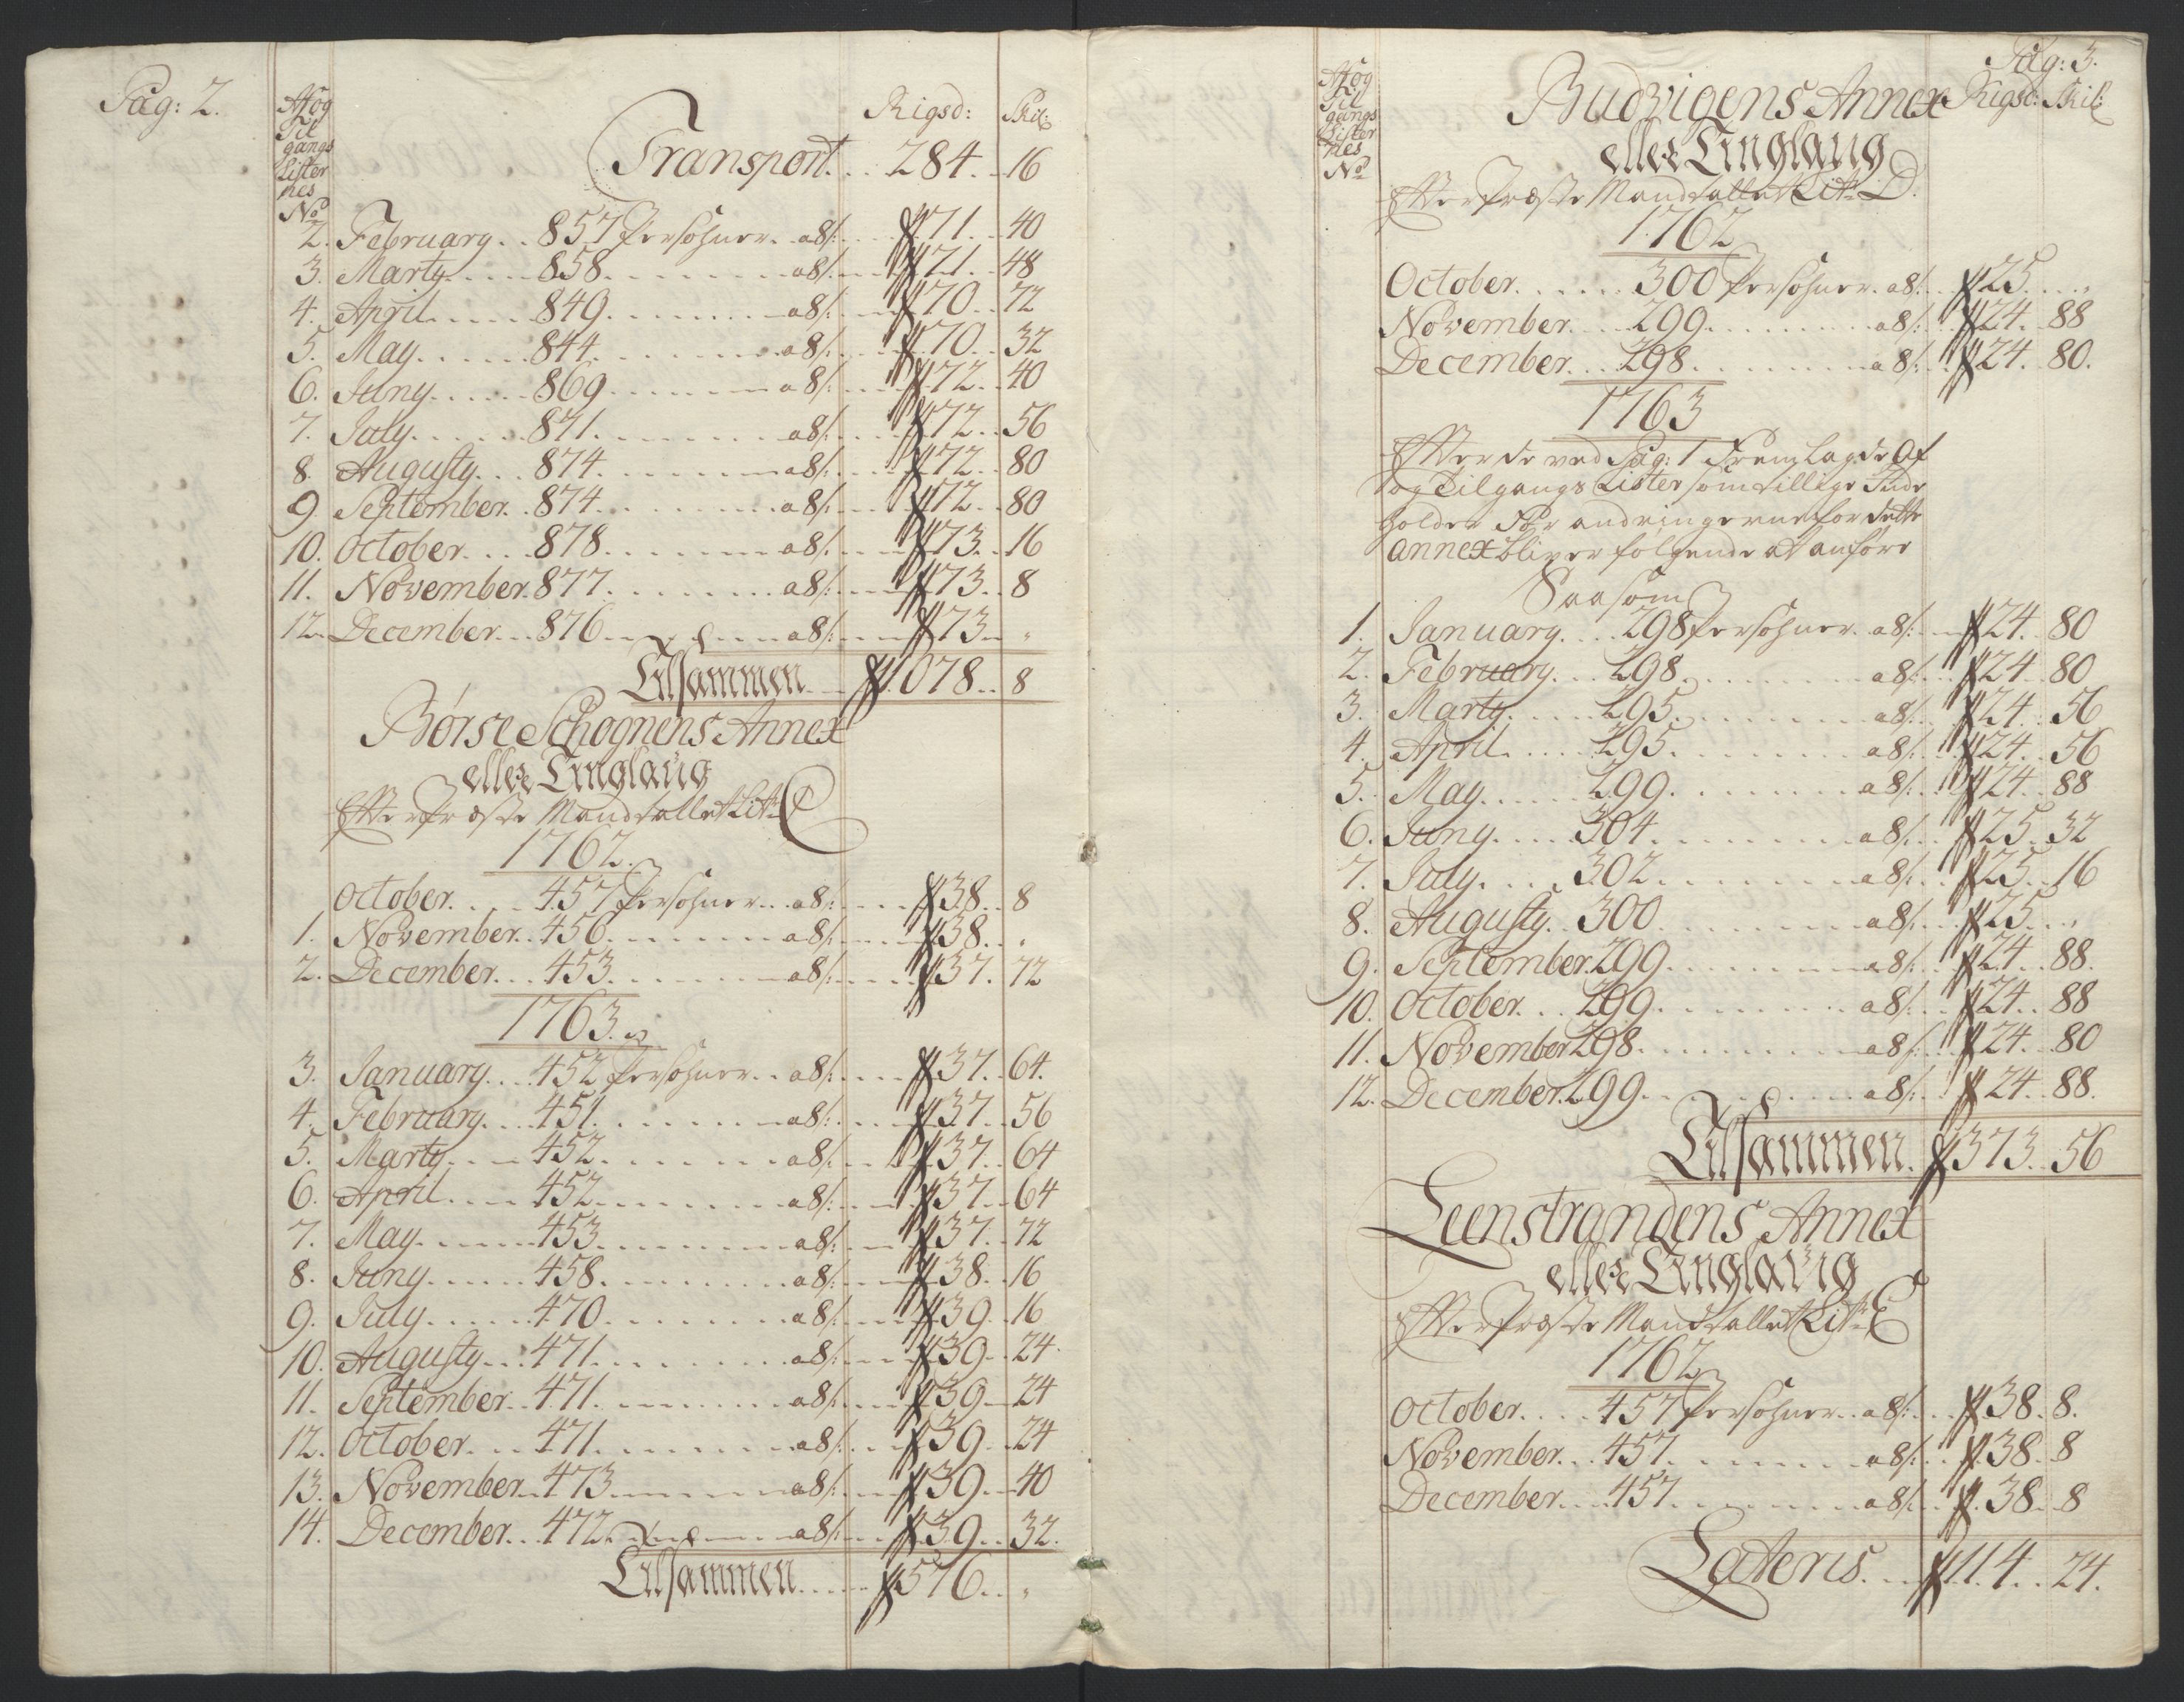 Pag: 2.
Af og
Til
gangs
Lister
nes
No
Rigsd: Skil:
Transport... 284. 16
2. February.. 857 Personer. a 8 s: 71. 40
3. Marty.... 858. a 8 s: 71. 48
4. April..... 849. a 8 s: 70. 72
5. May...... 844. a 8 s: 70. 32
6. Juny...... 869. a 8 s: 72. 40
7. July...... 871. a 8 s: 72. 56
8. Augusty... 874. a 8 s: 72. 80
9. September.. 874. a 8 s: 72. 80
10. October.... 878. a 8 s: 73. 16
11. November. 877. a 8 s: 73. 8
12. December... 876. a 8 s: 73. "
Tilsammen 1078.. 8
Børse Schognens Annex
eller Tinglaug
Efter Præste Mandtallet Lit: C
1762.
October.... 457 Personer.. a 8 s: 38.. 8
1. November.. 456. a 8 s: 38.. "
2. December... 453. a 8 s: 37. 72
1763.
3. January... 452 Personer.. a 8 s: 37.. 64.
4. February... 451. a 8 s: 37.. 56
5. Marty.... 452. a 8 s: 37.. 64
6. April.... 452. a 8 s: 37.. 64
7. May...... 453. a 8 s: 37.. 72
8. Juny...... 458. a 8 s: 38.. 16
9. July...... 470. a 8 s: 39.. 16
10. Augusty... 471. a 8 s: 39.. 24.
11. September.. 471. a 8 s: 39.. 24
12. October.... 471. a 8 s: 39.. 24
13. November.. 473. a 8 s: 39.. 40
14. December... 472. a 8 s: 39.. 32.
Tilsammen..... 576.. "
Pag: 3.
Af og
Til
gangs
Lister
nes
No
Budvigens Annex Rigsd: Skil:
eller Tinglaug
Efter Præste Mandtallet Lit: D.
1762
October...... 300 Personer. a 8 s: 25... "
November.... 299. a 8 s: 24. 88
December.... 298. a 8 s: 24. 80.
1763
Efter de ved Pag: 1 Fremlagde Af
og Tilgangs Lister som tillige Inde
holder Forandringerne for dette
Annex bliver følgende at anføre
Saasom
1. January... 298 Personer. a 8 s: 24. 80
2. February... 298. a 8 s: 24. 80
3. Marty..... 295. a 8 s: 24. 56
4. April..... 295. a 8 s: 24. 56
5. May...... 299. a 8 s: 24. 88
6. Juny.... 304. a 8 s: 25. 32
7. July.... 302. a 8 s: 25. 16
8. Augusty.. 300. a 8 s: 25.. "
9. September. 299. a 8 s: 24. 88.
10. October... 299. a 8 s: 24.. 88
11. November 298. a 8 s: 24. 80
12. December. 299. a 8 s: 24. 88.
Tilsammen. 373. 56
Leenstrandens Annex
eller Tinglaug
Efter Præste Mandtallet Lit: E
1762
October.... 457 Personer.. a 8 s: 38. 8.
November... 457. a 8 s: 38. 8
December.... 457. a 8 s: 38. 8
Lateris... 114.. 24.